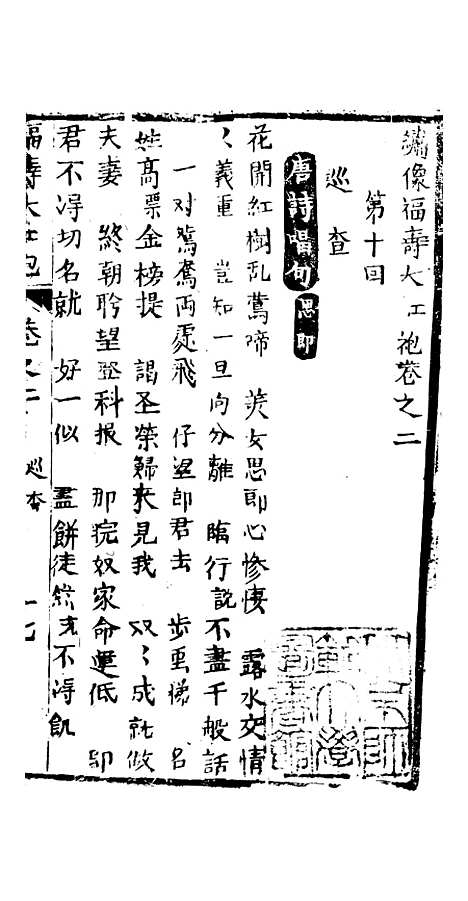 繡像福壽大红袍卷之二
第十回
巡查
唐詩唱句 思郎
花開紅樹乱鶯啼 美女思郎心惨悽 露水交情
〻義重 豈知一旦向分離 臨行説不盡千般話
一对鴛鴦両處飛 仔望郎君去 步雲梯 名
姓髙票金榜提 謁圣荣歸来見我 双〻成就做
夫妻 終朝聆望登科报 那完奴家命運低 郎
君不淂切名就 好一似 畫餅徒然充不淂飢
福壽大红袍 卷之二 巡查 一七